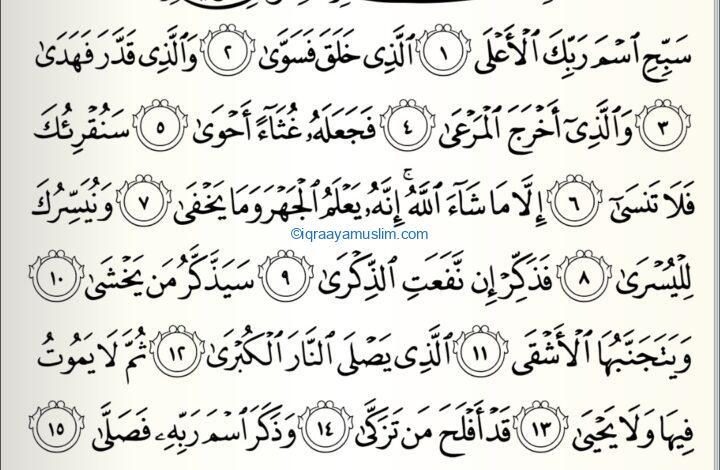 سَبِّحِ ٱسْمَ رَبِّكَ ٱلْأَعْلَى ١ ٱلَّذِى خَلَقَ فَسَوَّىٰ ٢ وَٱلَّذِى قَدَّرَ فَهَدَىٰ
٣ وَٱلَّذِىٓ أَخْرَجَ ٱلْمَرْعَىٰ ٤ فَجَعَلَهُۥ غُثَآءً أَحْوَىٰ ٥ سَنُقْرِئُكَ
فَلَا تَنسَىٰٓ ٦ إِلَّا مَا شَآءَ ٱللَّهُ ۚ إِنَّهُۥ يَعْلَمُ ٱلْجَهْرَ وَمَا يَخْفَىٰ ٧ وَنُيَسِّرُكَ
©iqraayamuslim.com
لِلْيُسْرَىٰ ٨ فَذَكِّرْ إِن نَّفَعَتِ ٱلذِّكْرَىٰ ٩ سَيَذَّكَّرُ مَن يَخْشَىٰ ١٠
وَيَتَجَنَّبُهَا ٱلْأَشْقَى ١١ ٱلَّذِى يَصْلَى ٱلنَّارَ ٱلْكُبْرَىٰ ١٢ ثُمَّ لَا يَمُوتُ
فِيهَا وَلَا يَحْيَىٰ ١٣ قَدْ أَفْلَحَ مَن تَزَكَّىٰ ١٤ وَذَكَرَ ٱسْمَ رَبِّهِۦ فَصَلَّىٰ ١٥